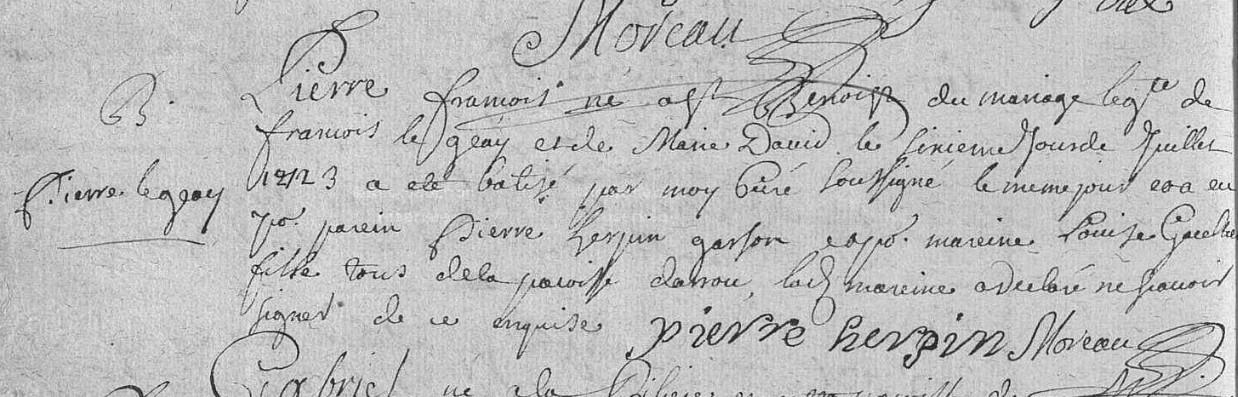 Moreau
B.
Pierre
françois né a St Benoist du mariage legte de
françois le geay et de Marie David le sixieme Jour de Juillet
Pierre le geay
1723 a eté batisé par moy Curé soussigné le meme jour et a eu
po. parein Pierre herpin garson et a po. mareine Louise
fille tous de la paroisse darrou, lad mareine a declaré ne scavoir
signer de ce enquise pierre herpin Moreau
Gabriel né a la